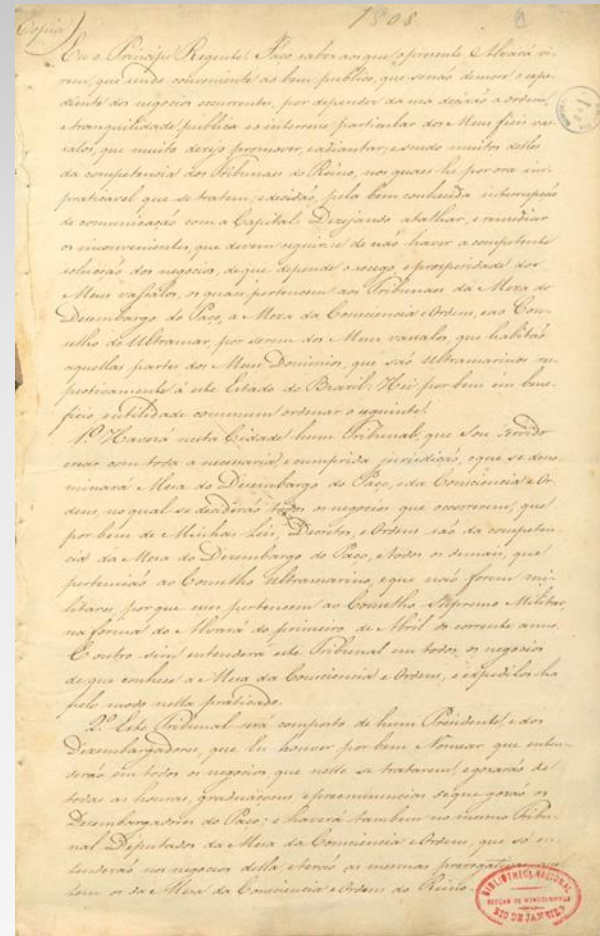 1808
(Copia)
Eu o Principe Regente Faço saber aos que o presente Alvará vi-
rem, que sendo conveniente ao bem publico, que se não demore o expe-
diente dos negocios occurrentes, por depender da sua decisão a ordem,
e tranquilidade publica e o interesse particular dos Meus fieis vas-
salos, que muito dezejo promover, e adiantar; e sendo muitos delles
da competencia dos Tribunaes do Reino, nos quaes he por ora im-
praticavel que se tratem, e decidão, pela bem conhecida interrupção
de comunicação com a Capital: Dezejando atalhar, e remediar
os inconvenientes, que devem seguir-se de não haver a competente
solução dos negocios, de que depende o socego, e prosperidade dos
Meus vassalos, os quaes pertencem aos Tribunaes da Meza do
Desembargo do Paço, a Meza da Consciencia e Ordens, e ao Con-
selho do Ultramar, por serem dos Meus vassalos, que habitão
aquellas partes dos Meus Dominios, que são Ultramarinos res-
pectivamente á este Estado do Brazil: Hei por bem em bene-
ficio, e utilidade commum ordenar o seguinte.
1º Haverá nesta Cidade hum Tribunal, que Sou servido
crear com toda a necessaria, e cumprida jurisdicção, e que se deno-
minará Mesa do Desembargo do Paço, e da Consciencia e Or-
dens, no qual se decidirão todos os negocios que occorrerem, que
por bem de Minhas Leis, Decretos, e Ordens são da competen-
cia da Mesa do Dezembargo do Paço, e todos os demais, que
pertencião ao Conselho Ultramarino, e que não forem mi-
litares, porque esses pertencem ao Conselho Supremo Militar,
na forma do Alvará do primeiro de Abril do corrente anno.
E outro sim entenderá este Tribunal em todos os negocios
de que conhece a Mesa da Consciencia e Ordens, e expedilos-ha
pelo modo nella praticado.
2º Este Tribunal será composto de hum Presidente, e dos
Dezembargadores, que Eu houver por bem Nomear que enten-
derão em todos os negocios que nelle se tratarem, e gozarão de
todas as honras, graduaçoens e preeminencias de que gozão os
Desembargadores do Paço; e haverá tambem no mesmo Tribu-
nal Deputados da Mesa da Consciencia e Ordens, que só en-
tenderão nos negocios della e terão as mesmas prerogativas que
tem os da Mesa da Consciencia e Ordens do Reino.
BIBLIOTHECA NACIONAL
SECÇÃO DE MANUSCRIPTOS
RIO DE JANEIRO